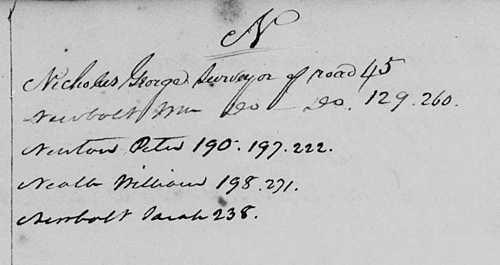 N
Nicholas George Surveyor of road 45
Newbolt Wm Do Do. 129.260.
Newton Peter 190.197.222.
William 198.271.
Newbolt Sarah 238.